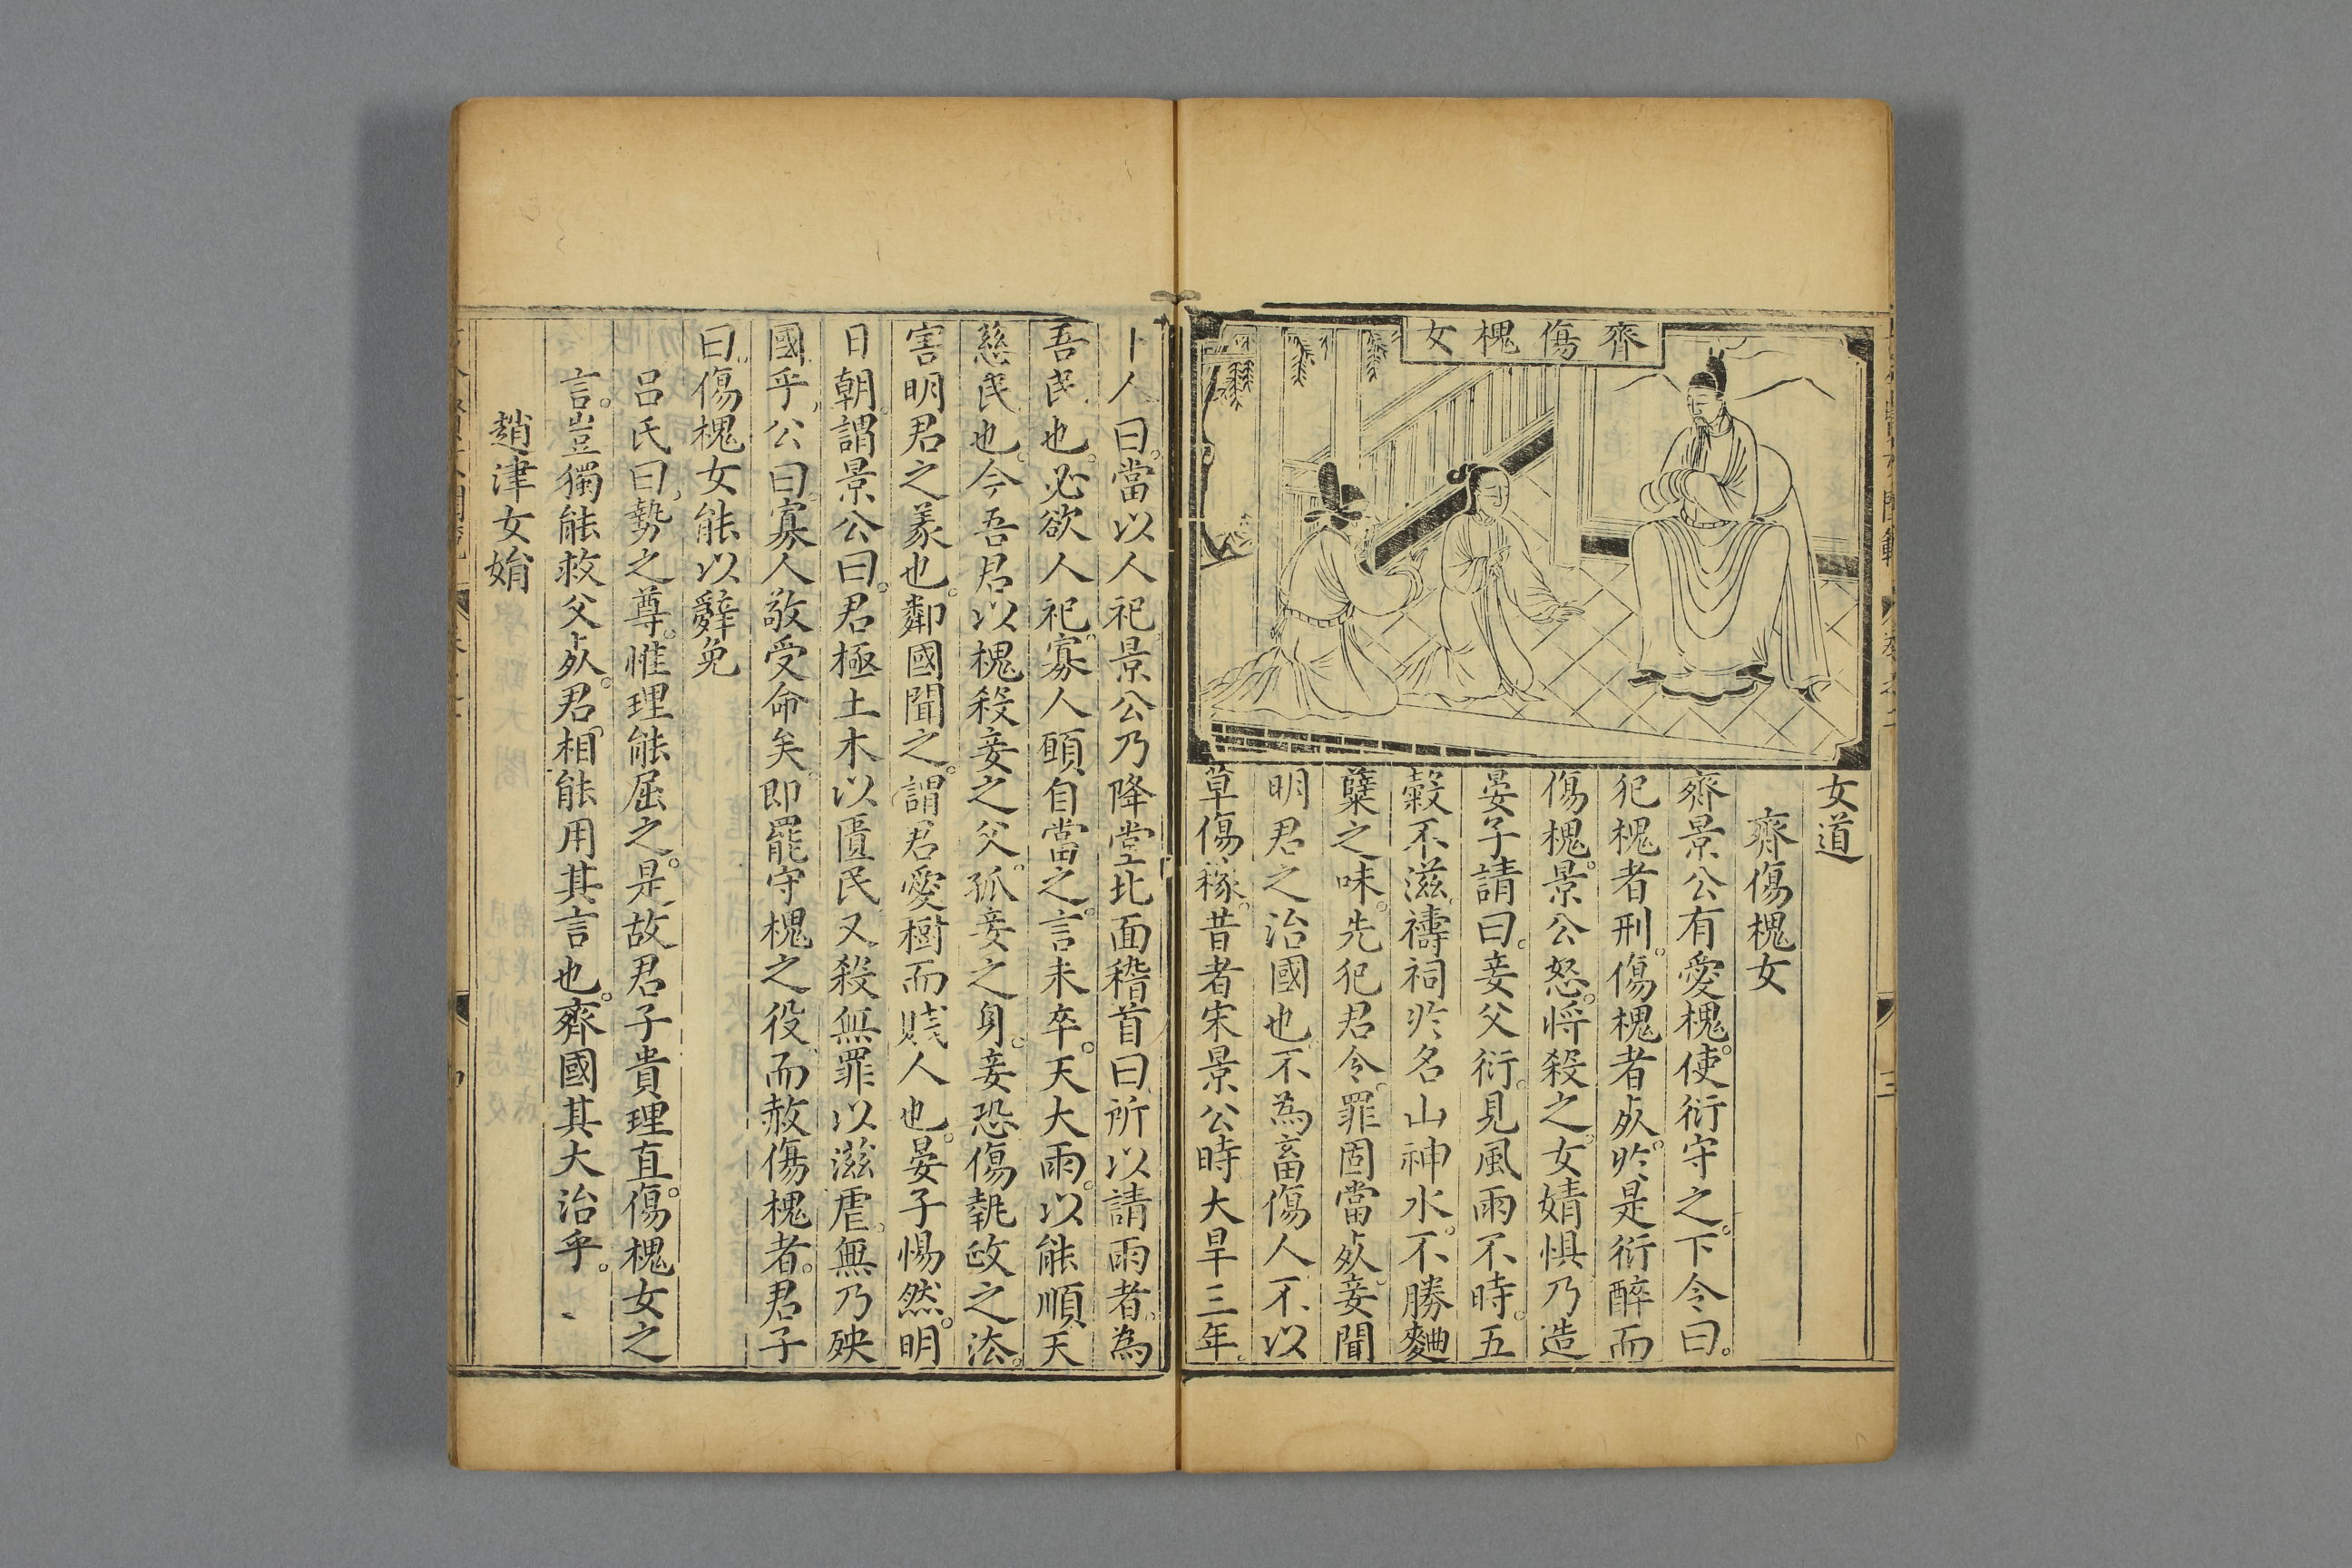 齊傷槐女
女道
齊傷槐女
齊景公有愛槐。使衍守之。下令曰。
犯槐者刑。傷槐者死。於是衍醉而
傷槐。景公怒。將殺之。女婧懼乃造
晏子請曰。妾父衍。見風雨不時。五
穀不滋。禱祠於名山神水。不勝麯
糵之味。先犯君令。罪固當死。妾聞
明君之治國也。不為畜傷人。不以
草傷稼。昔者宋景公時大旱三年。
卜人曰。當以人祀。景公乃降堂北面稽首曰。所以請雨者。為
吾民也。必欲人祀。寡人願自當之。言未卒。天大雨。以能順天
慈民也。今吾君以槐殺妾之父。孤妾之身。妾恐傷執政之法。
害明君之義也。鄰國聞之。謂君愛樹而賤人也。晏子惕然。明
日朝。謂景公曰。君極土木以匱民。又殺無罪以滋虐。無乃殃
國乎。公曰。寡人敬受命矣。即罷守槐之役。而赦傷槐者。君子
曰。傷槐女能以辭免
呂氏曰。勢之尊。惟理能屈之。是故君子貴理直。傷槐女之
言。豈獨能救父死。君相能用其言也。齊國其大治乎。
趙津女娟